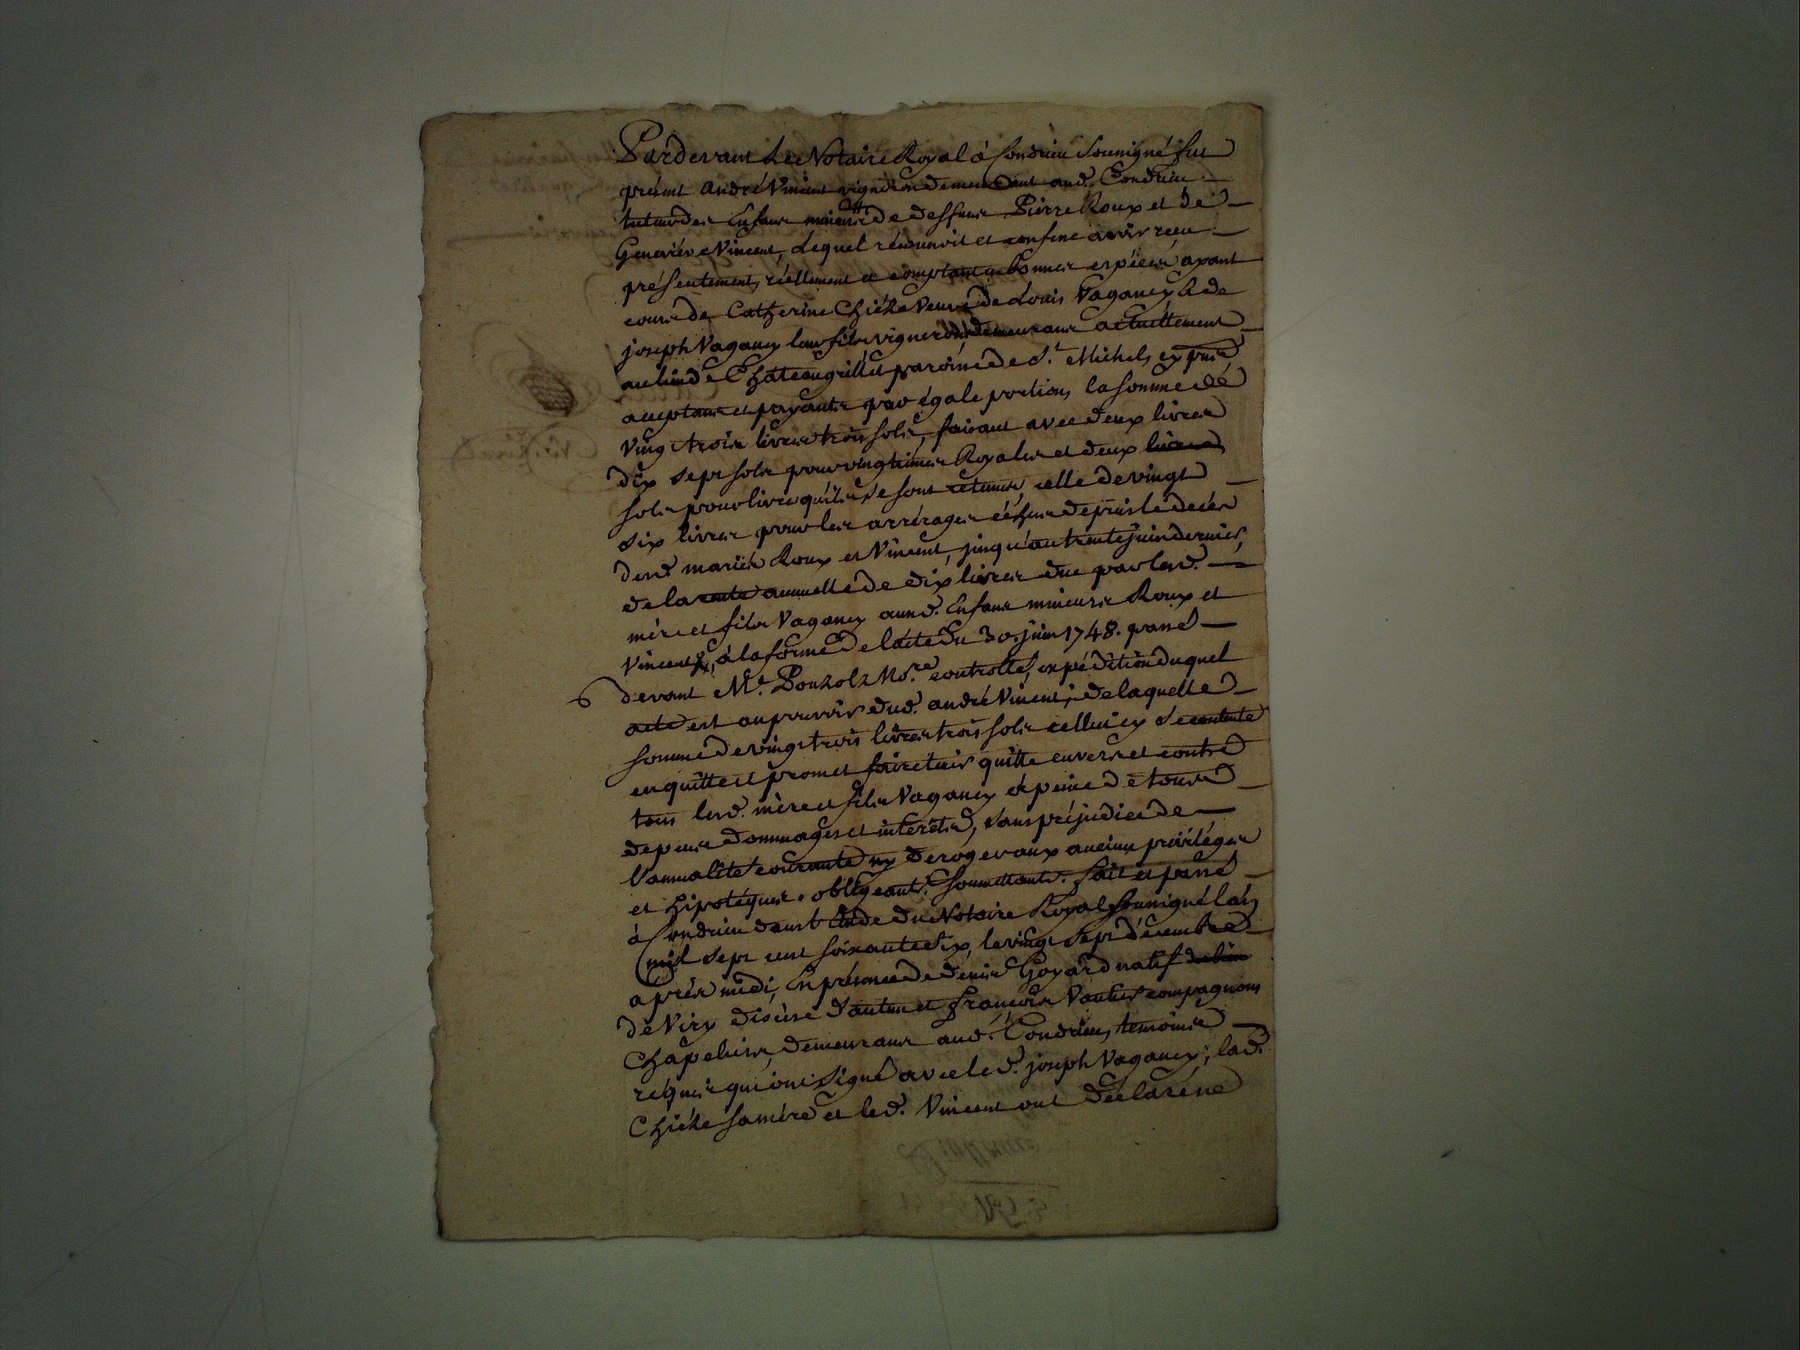 Pardevant Le Notaire Royal à Condrieu soussigné fut
présent andré Vincent vigneron demeurant aud. Condrieu
tuteur des Enfans mineurs de deffunts Pierre Roux et de
Geneviéve Vincent, Lequel reconnoit et confesse avoir receu
présentement, réellement et comptant en bonnes espéces, ayant
cours de Catherine Chiéze Veuve de Louis Vaganey & de
joseph Vaganey leur fils vignerons, demeurans actuellement
au lieu de Châteaugrillet paroisse de St. Michel, cy présens
acceptans et payants par égale portion, la somme de
Vingt trois livres trois sols, faisant avec deux livres
dix sept sols pour vingtiemes Royales et deux
sols pour livre qu'ils se sont retenus, celle de vingt
six livres pour les arrérages échus depuis le decés
desd. mariés Roux et Vincent, jusqu'au trente juin dernier,
de la rente annuelle de dix livres due par lesd.
mére et fils Vaganey auxd. Enfans mineurs Roux et
Vincent, à la forme de l'acte du 30. juin 1748. passé
devant Me. Pouzols No.re controllé, expédition duquel
acte est au pouvoir dud. andré Vincent; de laquelle
somme de vingt trois livres trois sols celluicy se contente
en quitte et promet faire tenir quitte envers et contre
tous lesd. mére et fils Vaganey à peine de tous
depens dommages et interéts, sans préjudice de
l'annualité courante ny deroger aux anciens priviléges
et hipotéques. obligeant. soumettant. fait et passé
à Condrieu dans l'étude du Notaire Royal soussigné l'an
mil sept cent soixante dix, le vingt sept décembre
aprés midi, En présence de denis Goyard natif
de Viry diocése d'autun et françois Vautier compagnons
Chapeliers, demeurans aud. Condrieu, temoins
réquis qui ont signé avec led. joseph Vaganey; lad.
Chiéze sa mére et led. Vincent ont déclaré ne